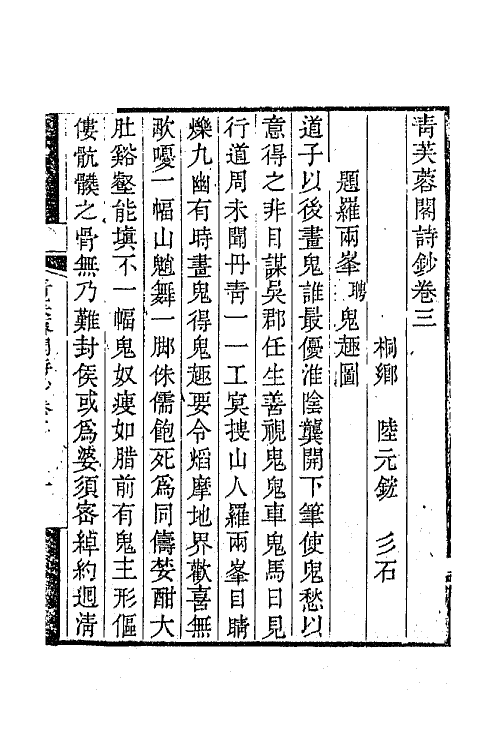 青芙蓉閣詩鈔卷三
桐鄉 陸元鋐 彡石
題羅兩峯聘鬼趣圖
道子以後畫鬼誰最優淮陰龔開下筆使鬼愁以
意得之非目謀吳郡任生善視鬼鬼車鬼馬日見
行道周未聞丹青一一工冥搜山人羅兩峯目睛
爍九幽有時畫鬼得鬼趣要令熖摩地界歡喜無
歌嚘一幅山魈舞一脚侏儒飽死爲同儔婪酣大
肚谿壑能填不一幅鬼奴瘦如腊前有鬼主形傴
僂骯髒之骨無乃難封侯或爲婆須密綽約迴清